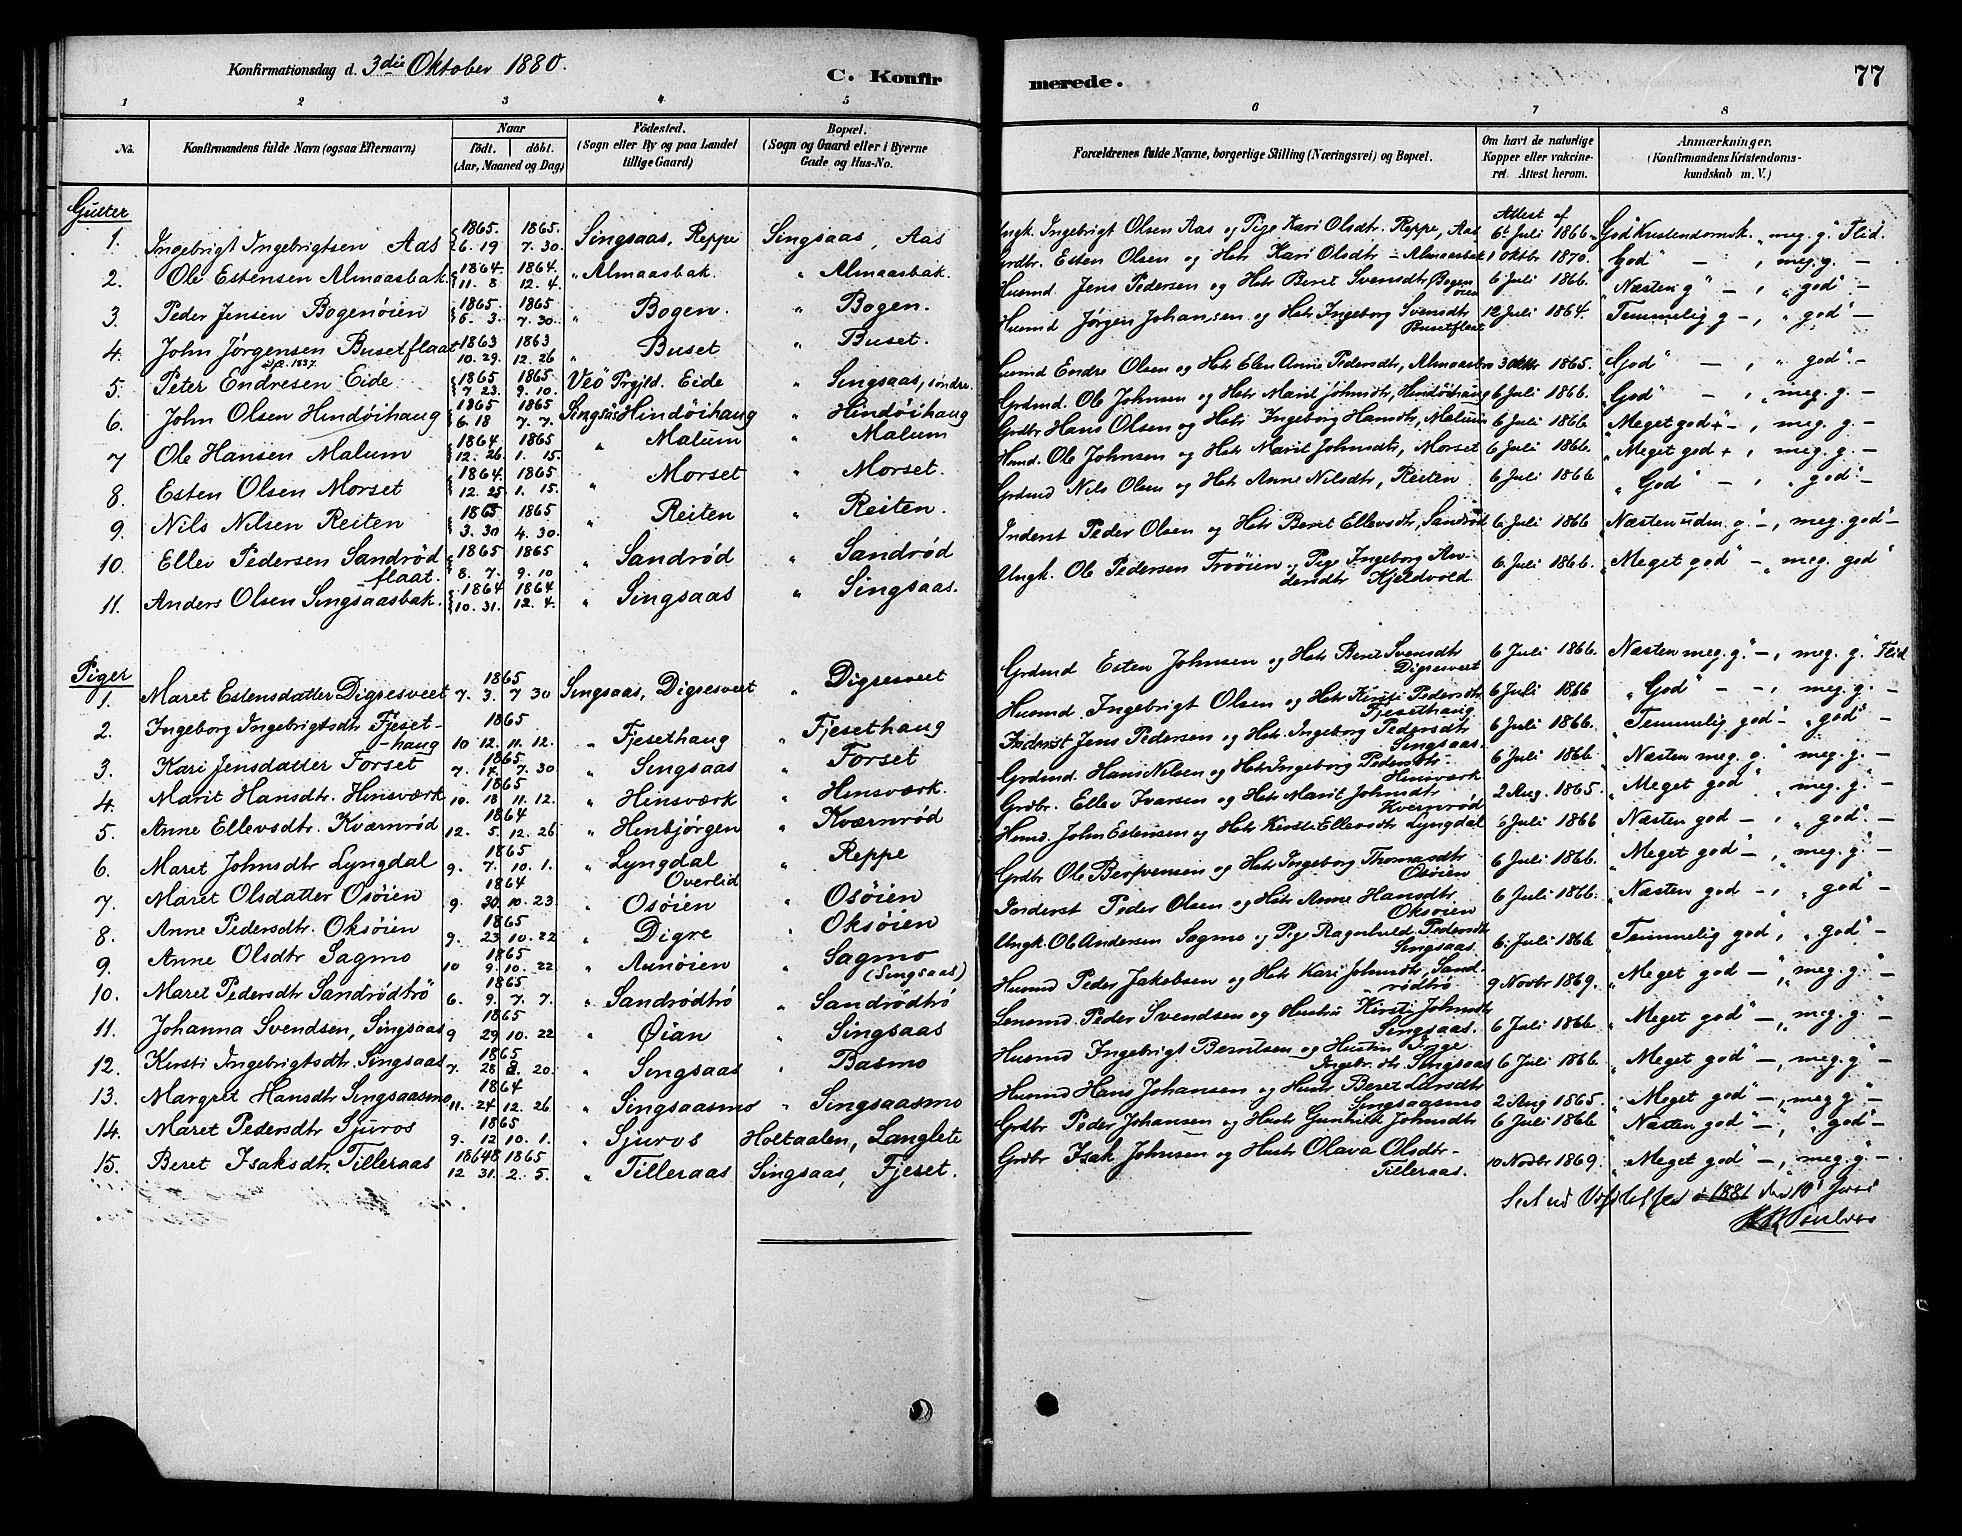 Konfirmationsdag d. 3die Oktober 1880.
C. Konfirmerede.
77
1 2 3 4 5 6 7 8
No. | Konfirmandens fulde Navn (ogsaa Efternavn) | Naar født. døbt. (Aar, Maaned og Dag) | Fødested. (Sogn eller By og paa Landet tillige Gaard) | Bopæl. (Sogn og Gaard eller i Byerne Gade og Hus-No. | Forældrenes fulde Navne, borgerlige Stilling (Næringsvei) og Bopæl. | Om havt de naturlige Kopper eller vakcineret. Attest herom. | Anmærkninger. (Konfirmandens Kristendomskundskab m. V.)
Gutter
1. Ingebrigt Ingebrigtsen Aas | 1865. 6. 19 | 1865. 7. 30. | Singsaas, Reppe | Singsaas, Aas | Ungk. Ingebrigt Olsen Aas og Pige Kari Olsdtr. Reppe, Aas | Attest af 6t Juli 1866. | God Kristendomsk. „meg. g." Flid.
2. Ole Estensen Almaasbak | 1864. 11. 8 | 1864. 12. 4. | „ Almaasbak. | „ Almaasbak. | Grdbr. Esten Olsen og Hstr Kari Olsdtr – Almaasbak | 1 Oktbr 1870. | God" – , meg. g. –
3. Peder Jensen Bogenøien | 1865. 6. 3. | 1865 7. 30. | „ Bogen. | „ Bogen. | Husmd Jens Pedersen og Hstr Beret Svensdtr Bogenøien | 6 Juli 1866. | „Næsten g" – , „god" –
4. John Jørgensen Busetflaat | 1863 10. 29. | 1863 12. 26 | „ Buset | „ Buset. | Husmd Jørgen Johansen og Hstr Ingeborg Svensdtr Busetflaat | 12 Juli 1864. | Temmelig g –, „god" –
5. Peter Endresen Eide | 1865 7 23 | 1865 9. 10. | Veø Prgjld. Eide | „ Singsaas, søndre. | Husmd Endre Olsen og Hstr Elen Anne Pedersdtr, Almaas | 1865. | „God" – „god" –
6. John Olsen Hindøihaug | 1865 6. 18 | 1865 7. 7. | Singsås Hindøihaug | „ Hindöihaug | Grdmd. Ole Johnsen og Hstr Marit Johnsdtr, Hindøihaug | 6 Juli 1866. | „God" – „meg. g. –
7 Ole Hansen Malum | 1864 12. 26 | 1865 1. 15. | „ Malum | „ Malum | Grdbr Hans Olsen og Hstr Ingeborg Hansdtr, Malum | 6 Juli 1866 | „Meget god + –, meg. g. –
8. Esten Olsen Morset | 1864 12. 25. | 1865 1. 15. | „ Morset | „ Morset. | Hmd. Ole Johnsen og Hstr Marit Johnsdtr, Morset | 6 Juli 1866. | „Meget god + , meg. g. –
9. Nils Nilsen Reiten | 1865 3. 30 | 1865 4. 30. | „ Reiten | „ Reiten. | Grdmd Nils Olsen og Hstr Anne Nilsdtr, Reiten | 6 Juli 1866 | „God" – , „god" –
10. Ellev Pedersen Sandrødflaat. | 1865 8. 7. | 1865 9. 10 | „ Sandrød | „ Sandrød | Inderst Peder Olsen og Hstr Beret Ellevsdtr, Sandrød | 6 Juli 1866 | „Næsten uden. g. –, meg. god" –
11. Anders Olsen Singsaasbak. | 1864 10. 31. | 1864 12. 4. | „ Singsaas | „ Singsaas. | Ungk. Ole Pedersen Trøøien, Pige Ingeborg Andersdtr Kjeldvold | 6 Juli 1866. | „Meget god" – „meg. god"
Piger
1. Maret Estensdatter Digresveet | 1865 7. 3. | 7 30 | Singsaas, Digresveet | „ Digresveet | Grdmd Esten Johnsen og Hstr Beret Svensdtr Digresveet | 6 Juli 1866. | Næsten meg. g." –, meg. g." Flid
2. Ingeborg Ingebrigtsdtr Fjesethaug | 1865 10 12. | 11. 12. | „ Fjesethaug | „ Fjesethaug | Husmd. Ingebrigt Olsen og Hstr Kirsti Pedersdtr Fjesethaug | 6 Juli 1866 | „God" – –, meg. g. –
3. Kari Jensdatter Forset | 1865 7. 17. | 7. 30 | „ Singsaas | „ Forset | Inderst Jens Pedersen og Hstr. Ingeborg Pedersdtr Singsaas. | 6 Juli 1866. | Temmelig god" – „god" –
4. Marit Hansdtr. Hinsværk | 1865 10. 18 | 11. 12. | „ Hinsværk | „ Hinsværk. | Grdmd. Hans Nilsen og Hstr Ingeborg Pedersdtr Hinsværk | 6 Juli 1866 | Næsten meg. g. „meg. g." –
5. Anne Ellevsdtr. Kværnrød | 1864 12. 5. | 12. 26 | „ Hinbjørgen | „ Kværnrød | Grdbr. Ellev Ivarsen og Hstr Marit Johnsdtr Kværnrød | 2 Aug. 1865. | „Meget god" „meg. g." –
6. Maret Johnsdtr Lyngdal | 1865 9. 7. | 10. 1. | „ Lyngdal Overlid | „ Reppe | Hmd. John Estensen og Hstr Kirsti Ellevsdtr Lyngdal | 6 Juli 1866 | „Næsten god – , „god" –
7. Maret Olsdatter Osøien | 1864 9 30. | 10. 23 | „ Osøien | „ Osöien | Grdbr Ole Bersvensen og Hstr Ingeborg Thomasdtr Osøien | 6 Juli 1866. | „Meget god – , „meg. g." –
8. Anne Pedersdtr. Oksøien | 1865 9. 23 | 10. 22 | „ Digre | „ Oksøien | Inderst Peder Olsen og Hstr Anne Hansdtr Oksøien | 6 Juli 1866. | „Næsten god – , „god" –
9. Anne Olsdtr Sagmo | 1865 10 9. | 10. 22. | „ Aunøien | „ Sagmo (Singsaas) | Ungk. Ole Andersen Sagmo og Pige Ragnhild Pedersdtr Singsaas. | 6. Juli 1866 | Temmelig god, „god" –
10. Maret Pedersdtr Sandrødtrö | 1865 6. 9. | 7. 7. | „ Sandrødtrö | „ Sandrødtrö | Husmd Peder Jakobsen og Hstr Kari Johnsdtr, Sandrødtrø | 9 Novbr 1869. | „Meget god – „meg. g." –
11. Johanna Svendsen, Singsaas | 1865 9 29 | 10. 22 | „ Øian | „ Singsaas | Lensmd. Peder Svendsen og Hustru Kirsti Johnsdtr Singsaas. | 6 Juli 1866 | „Meget god" –, „meg. g." –
12. Kirsti Ingebrigtsdtr. Singsaas | 1865 7. 28 | 8. 20. | „ Singsaas | „ Basmo | Husmd Ingebrigt Berntsen og Hustru Inge Ingebr.dtr Singsaas | 6 Juli 1866. | „Meget god" –, meg. g" –
13. Margret Hansdtr Singsaasmo | 1864 11. 24 | 12. 26 | „ Singsaasmo | „ Singsaasmo | Husmd Hans Johansen og Hustr Beret Larsdtr Singsaasmo | 2 Aug 1865. | „Meget god" –, „meg g" –
14. Maret Pedersdtr Sjuros | 1865 9. 12 | 10. 1. | „ Sjuros | Holtaalen, Langlete | Grdbr Peder Johansen og Hustr Gunhild Johnsdtr | 6 Juli 1866 | „Næsten god" –, „god" –
15. Beret Isaksdtr. Tilleraas | 1864 12 31. | 1865 2. 5. | „ Tilleraas | Singsaas, Fjeset. | Grdbr Isak Johnsen og Hustr Olava Olsdtr – Tilleraas. | 10 Novbr 1869. | „Meget god" –, „meg. g." –
1881 den 10